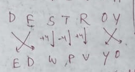 D E S T R O Y
+4 -4 +4
E D W P V Y O